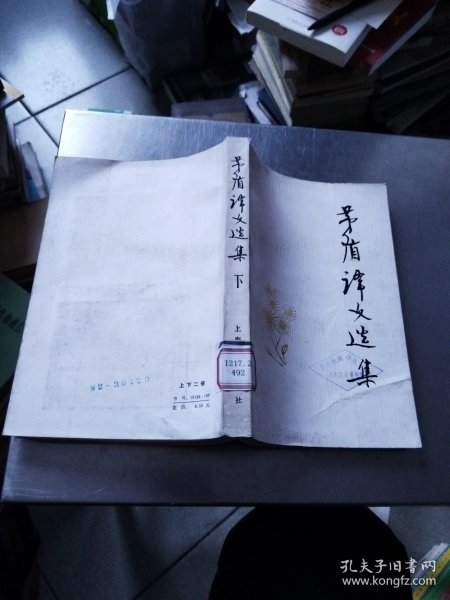 茅盾译文选集
下
上
1217.2
492
社
茅盾译文选集
82-30429
上下二册
孔夫子旧书网
www.kongfz.com